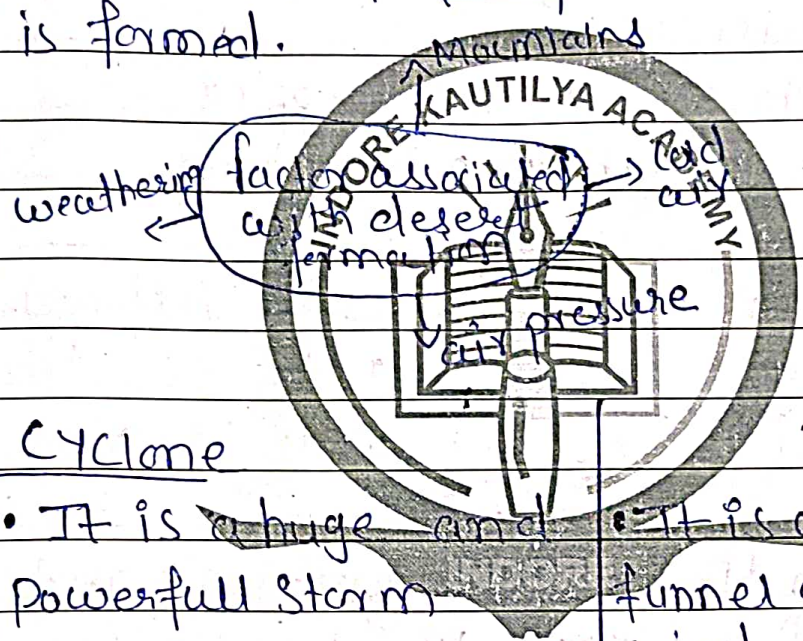 is formed.
Mountains
INDORE KAUTILYA ACADEMY
weathering
factor associated
with desert
formation
air
air pressure
Cyclone
• It is a huge and
• It is
Powerfull Storm
funnel
INDORE